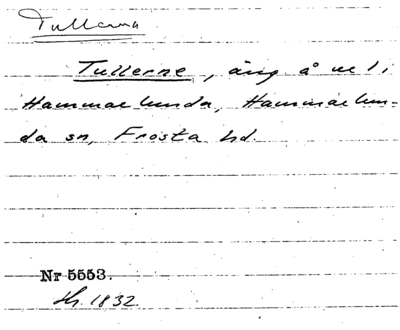 Tullerna
Tullerne, äng å nr 1,
Hammarlunda, Hammarlun-
da sn, Frosta hd.
Nr 5553.
1832.